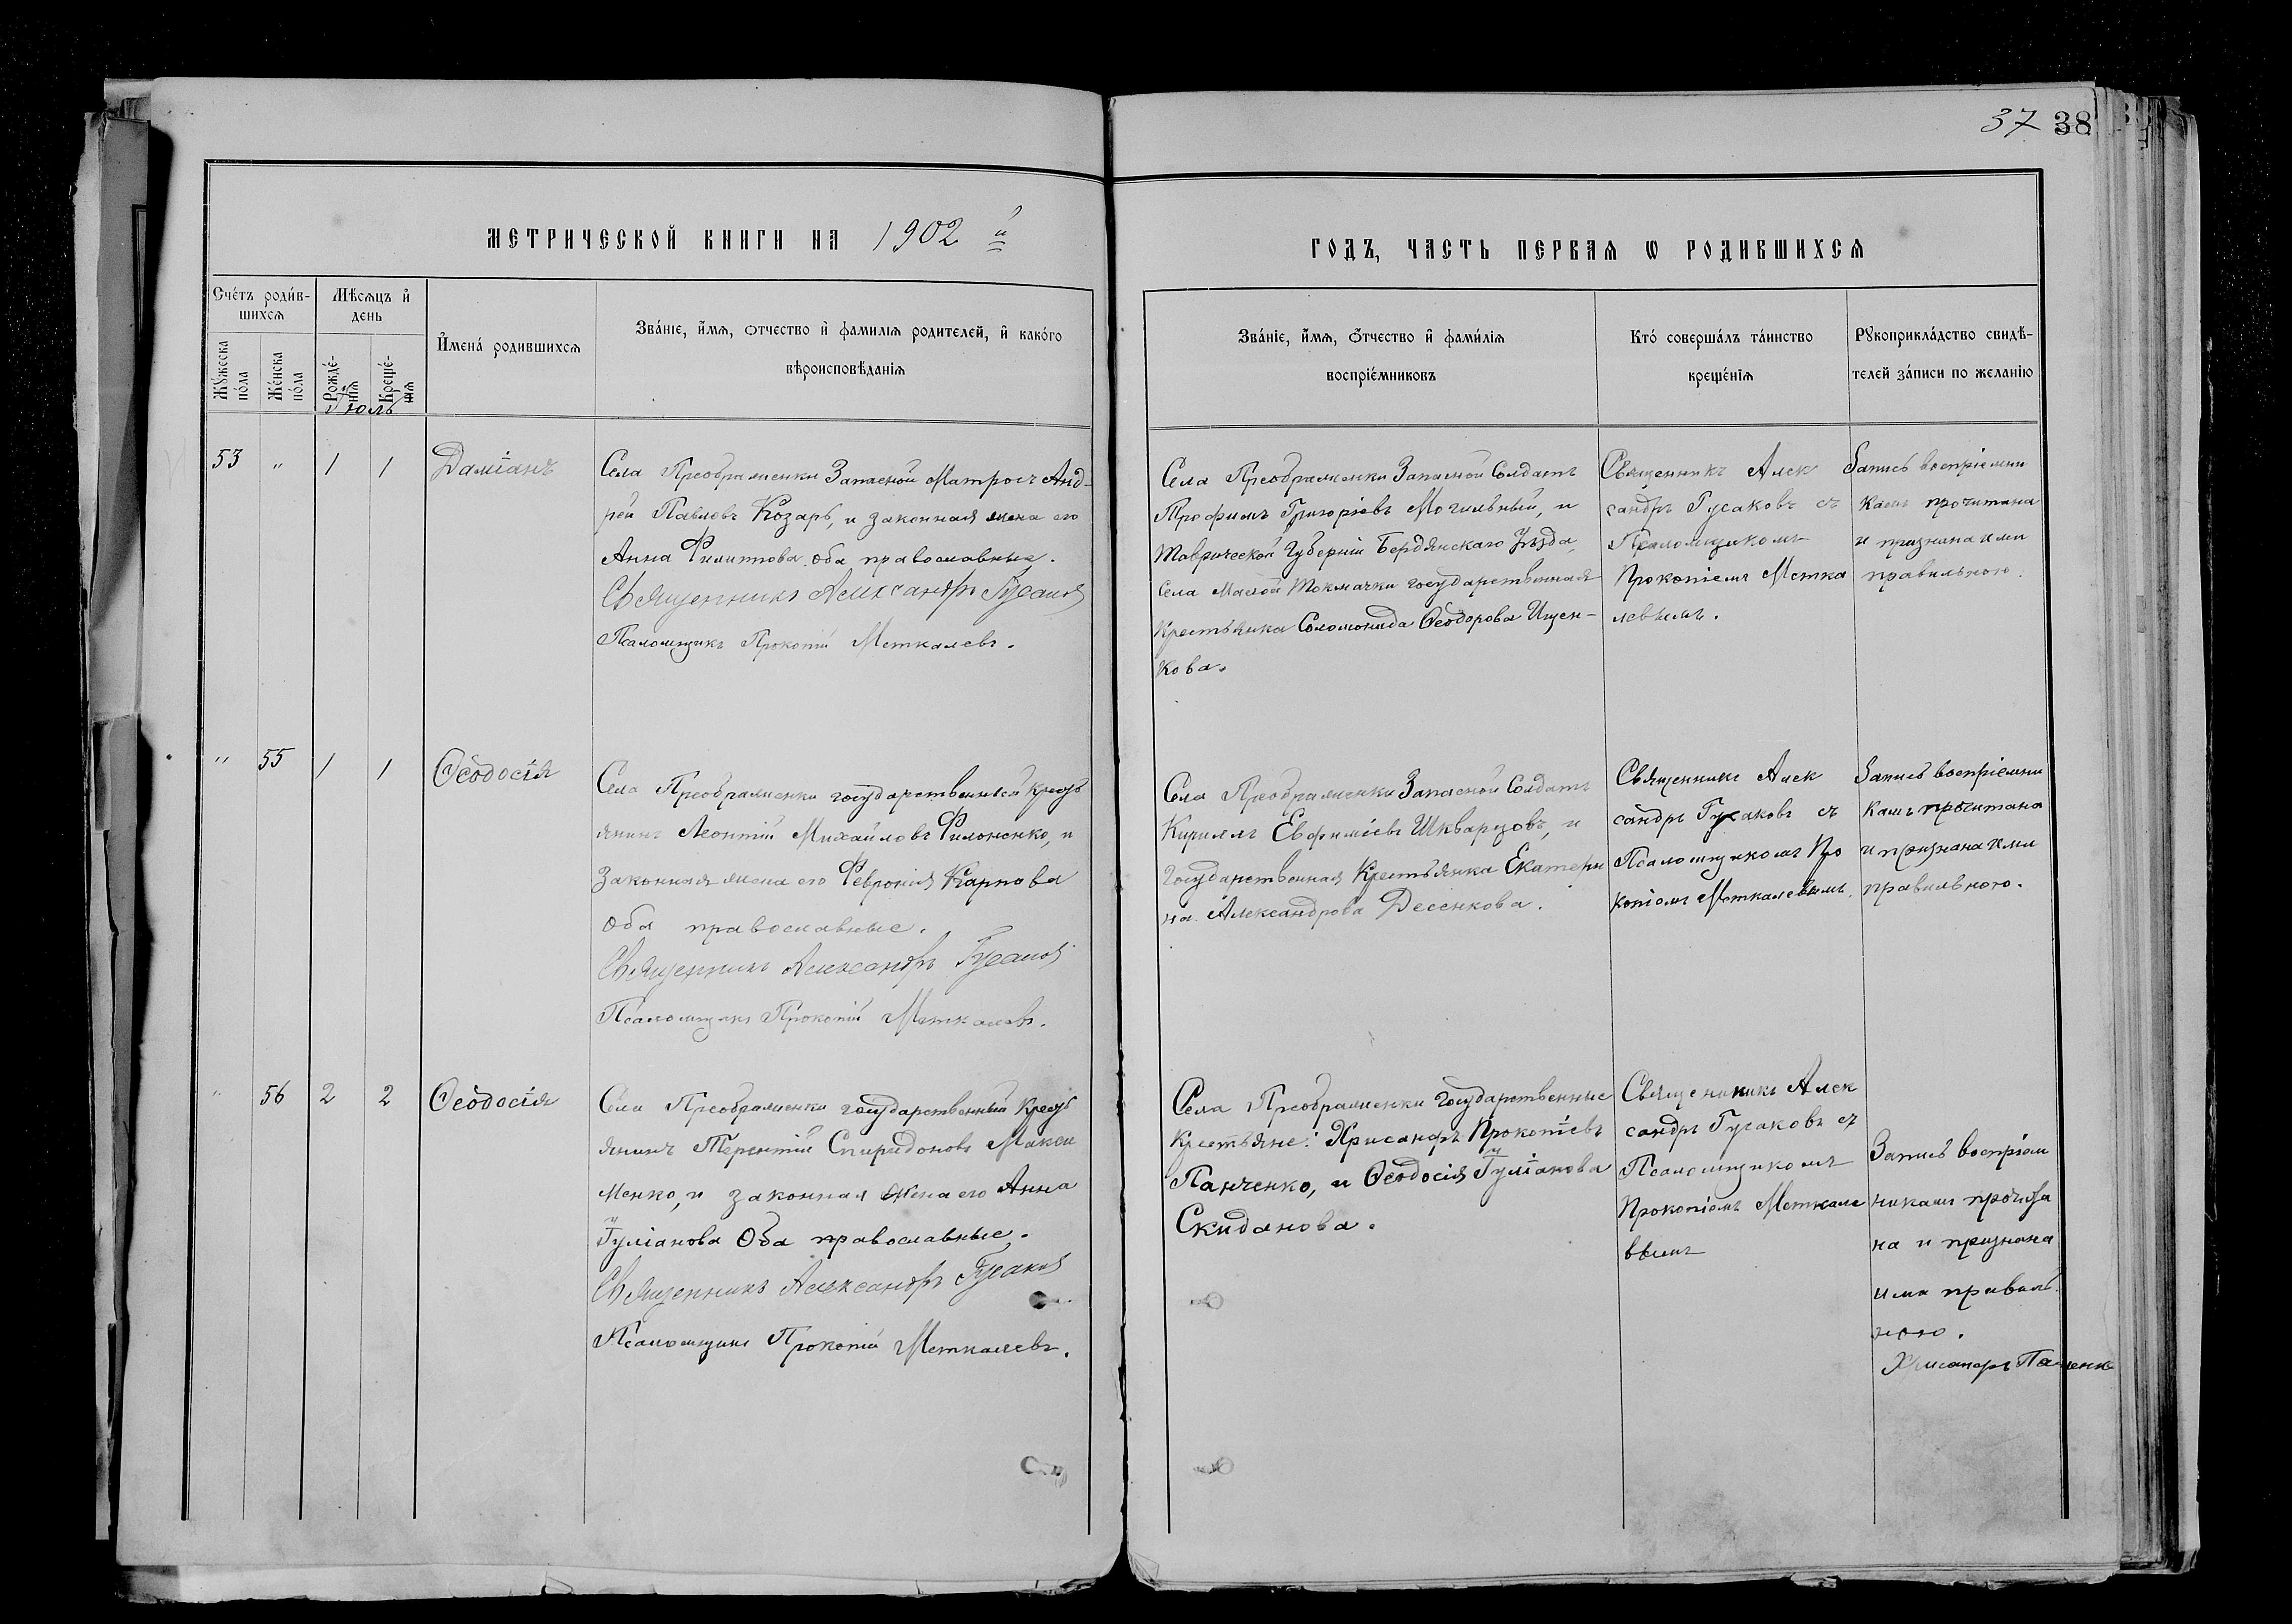 37 38
МЕТРИЧЕСКОЙ КНИГИ НА 1902 й
ГОДЪ, ЧАСТЬ ПЕРВАЯ Ѡ РОДИВШИХСѦ
Сче́тъ роди́в-
шихсѧ
Мѣ́сѧцъ и҆
день
И҆мена́ родившихсѧ
Зва́нїе, и҆́мѧ, ѻ҆́тчество и҆ фами́лїѧ родителей, и҆ како́го
вѣроисповѣ́данїѧ
Мꙋ́жеска
по́ла
Же́нска
по́ла
Рожде́-
нїѧ
Креще́-
нїѧ
Іюль
Зва́нїе, и҆́мѧ, ѻ҆́тчество и҆ фами́лїѧ
воспрїе́мниковъ
Кто̀ соверша́лъ та́инство
креще́нїѧ
Рꙋкоприкла́дство свидѣ́-
телей за́писи по желанїю
53 " 1 1 Даміанъ
Села Преображенки Запасной Матросъ Анд-
рей Павловъ Козарь, и законная жена его
Анна Филиппова, оба православные.
Священникъ Александръ Гусаковъ
Псаломщикъ Прокопій Меткалевъ.
Села Преображенки Запасной Солдатъ
Трофимъ Григоріевъ Могильный, и
Таврической Губерніи Бердянскаго Уѣзда,
Села Малой Токмачки государственная
Крестьянка Соломонида Ѳеодорова Ищен-
кова.
Священникъ Алек
сандръ Гусаковъ съ
Псаломщикомъ
Прокопіемъ Метка
левымъ.
Запись воспріемни
камъ прочитана
и признана ими
правильною.
" 55 1 1 Ѳеодосія
Села Преображенки государственный кресть
янинъ Леонтій Михайловъ Филоненко, и
законная жена его Феврония Карпова
оба православные.
Священникъ Александръ Гусаковъ
Псаломщикъ Прокопій Меткалевъ.
Села Преображенки Запасной Солдатъ
Кириллъ Евфиміевъ Шкварцовъ, и
государственная Крестьянка Екатери
на Александрова Десенкова.
Священникъ Алек
сандръ Гусаковъ съ
Псаломщикомъ Про
копіемъ Меткалевымъ.
Запись воспріемни
камъ прочитана
и признана ими
правильною.
" 56 2 2 Ѳеодосія
Села Преображенки государственный кресть
янинъ Терентій Спиридоновъ Макси
менко, и законная жена его Анна
Іуліанова Оба православные.
Священникъ Александръ Гусаковъ
Псаломщикъ Прокопій Меткалевъ.
Села Преображенки государственные
Крестьяне: Хрисанфъ Прокопіевъ
Панченко, и Ѳеодосія Іуліанова
Скиданова.
Священникъ Алек
сандръ Гусаковъ съ
Псаломщикомъ
Прокопіемъ Меткале
вымъ
Запись воспріем
никамъ прочита
на и признана
ими правиль
ною.
Хрисанфъ Панченко